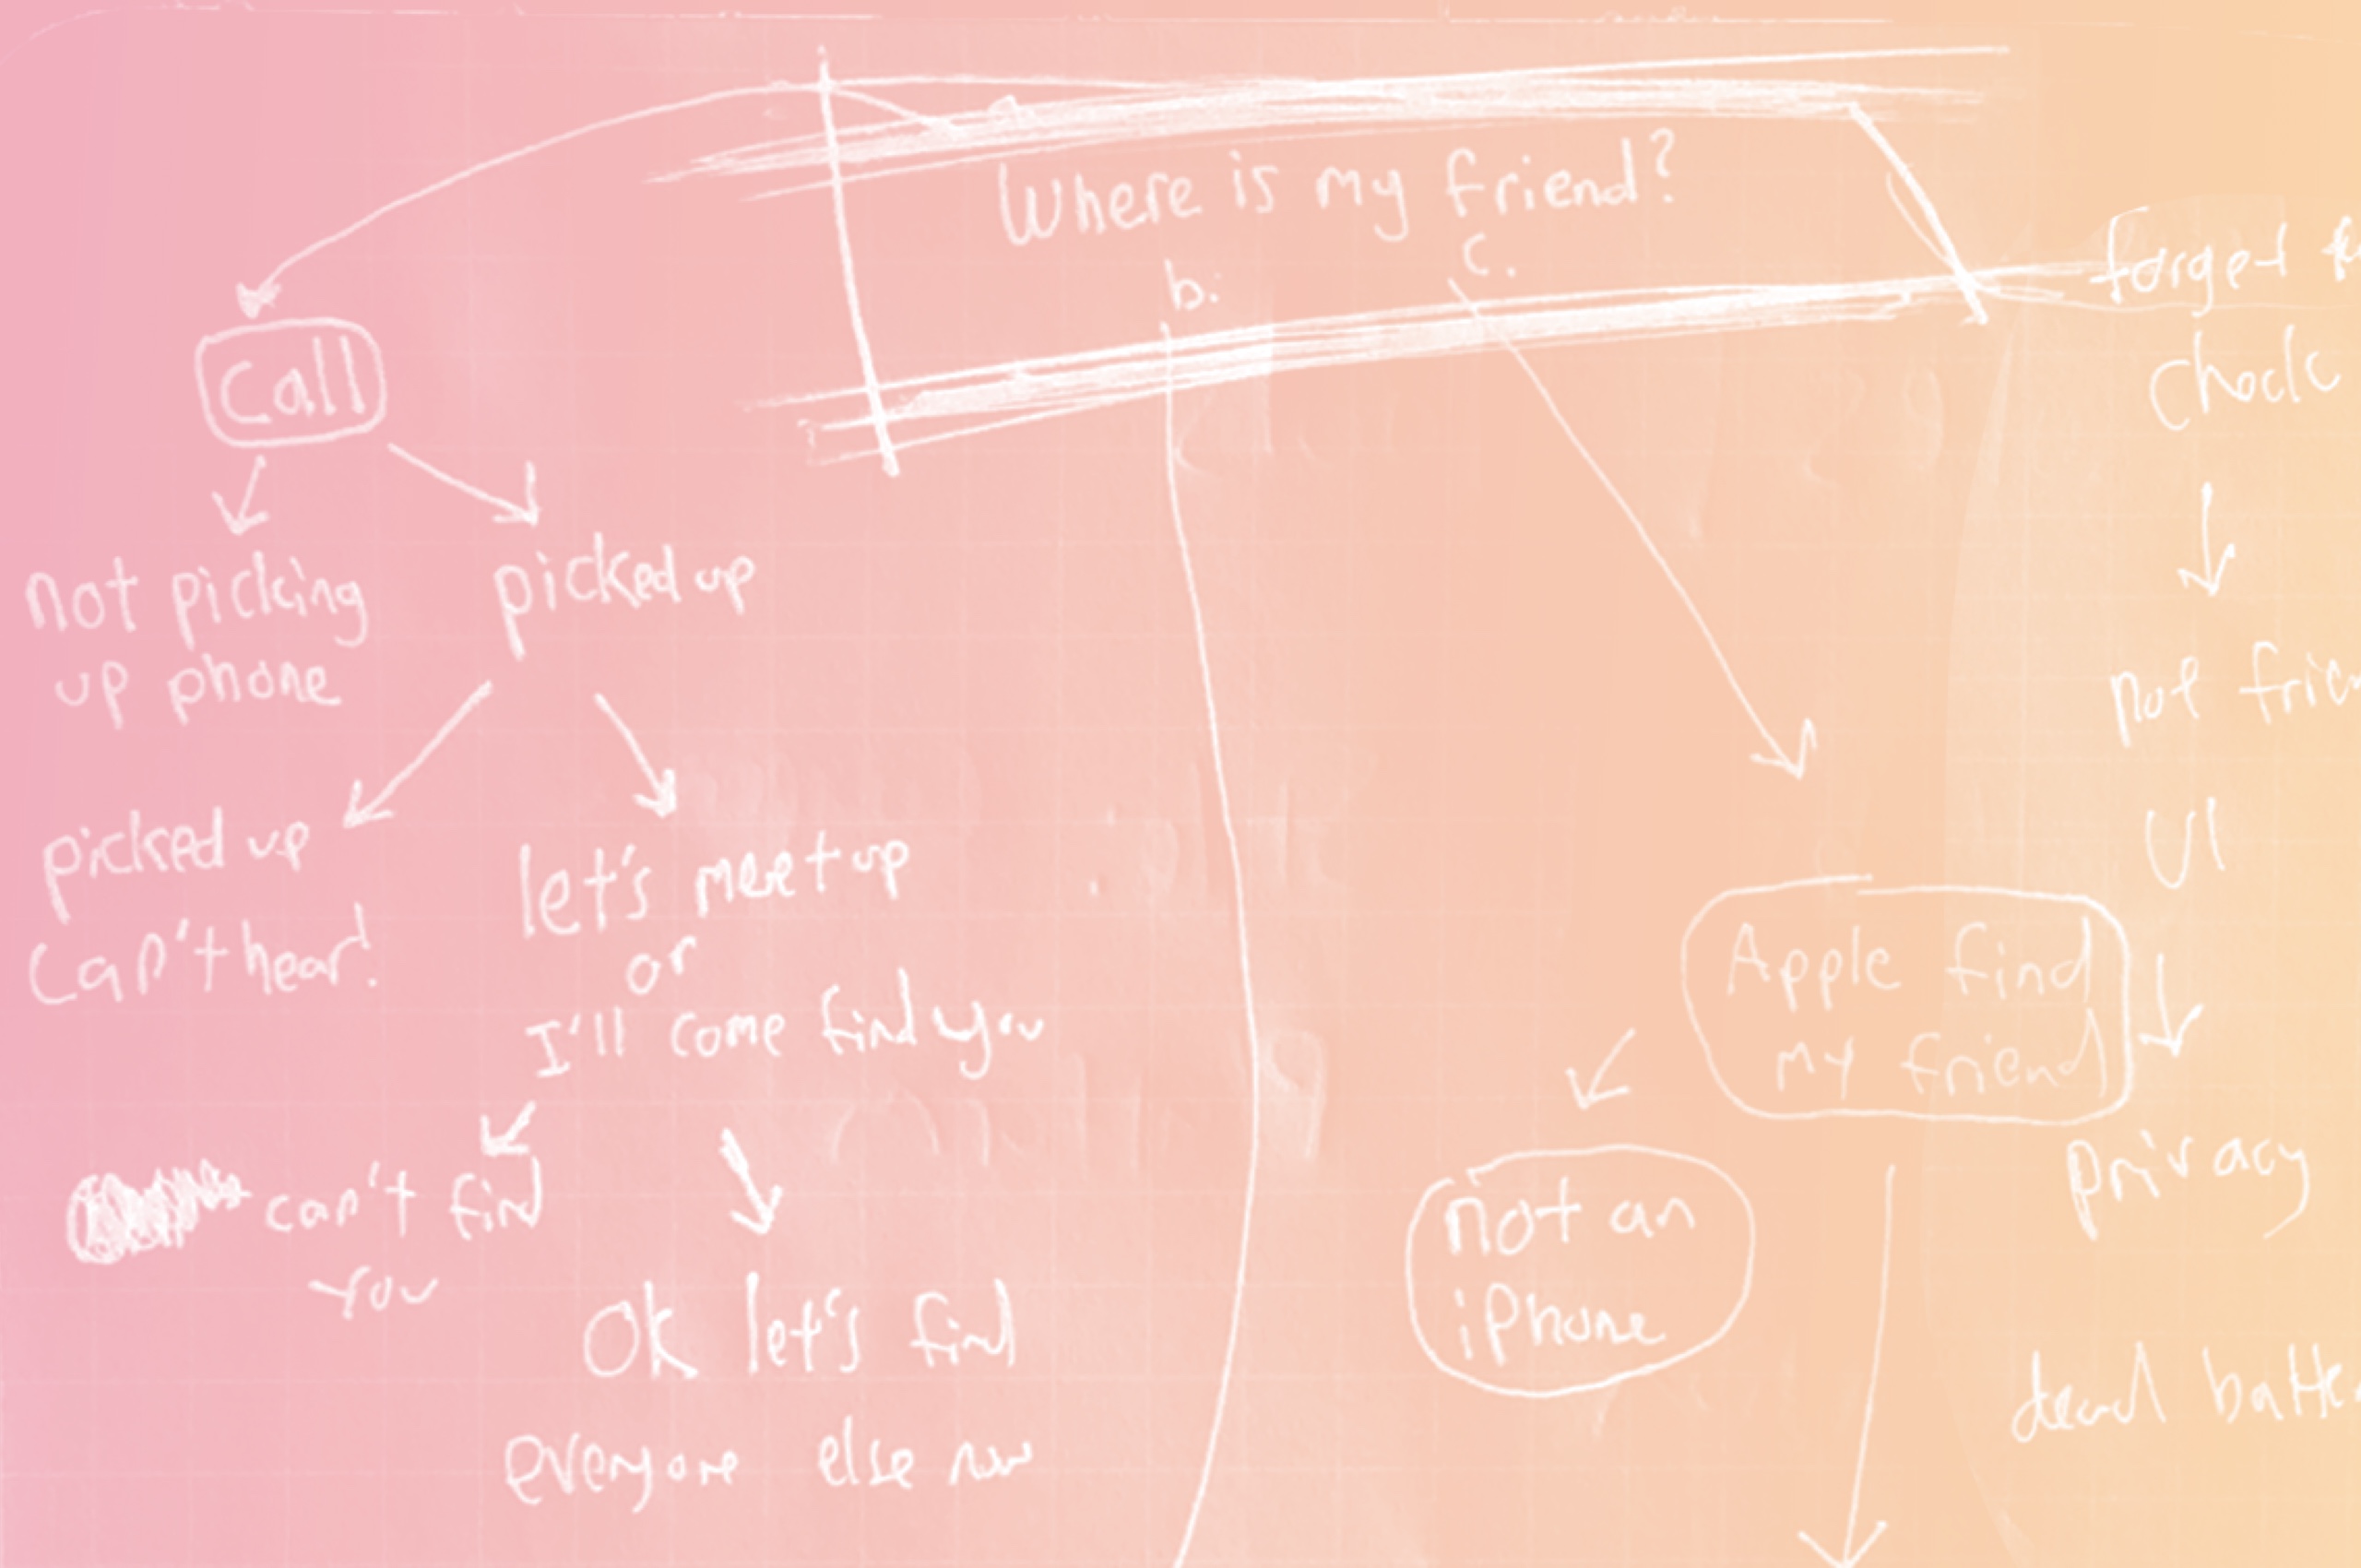 a.
Where is my friend?
b.
c.
Call
not picking
up phone
picked up
picked up
can't hear!
let's meet up
or
I'll come find you
can't find
you
Ok let's find
everyone else now
Apple find
my friend
not an
iPhone
forget
check
not
UI
privacy
dead